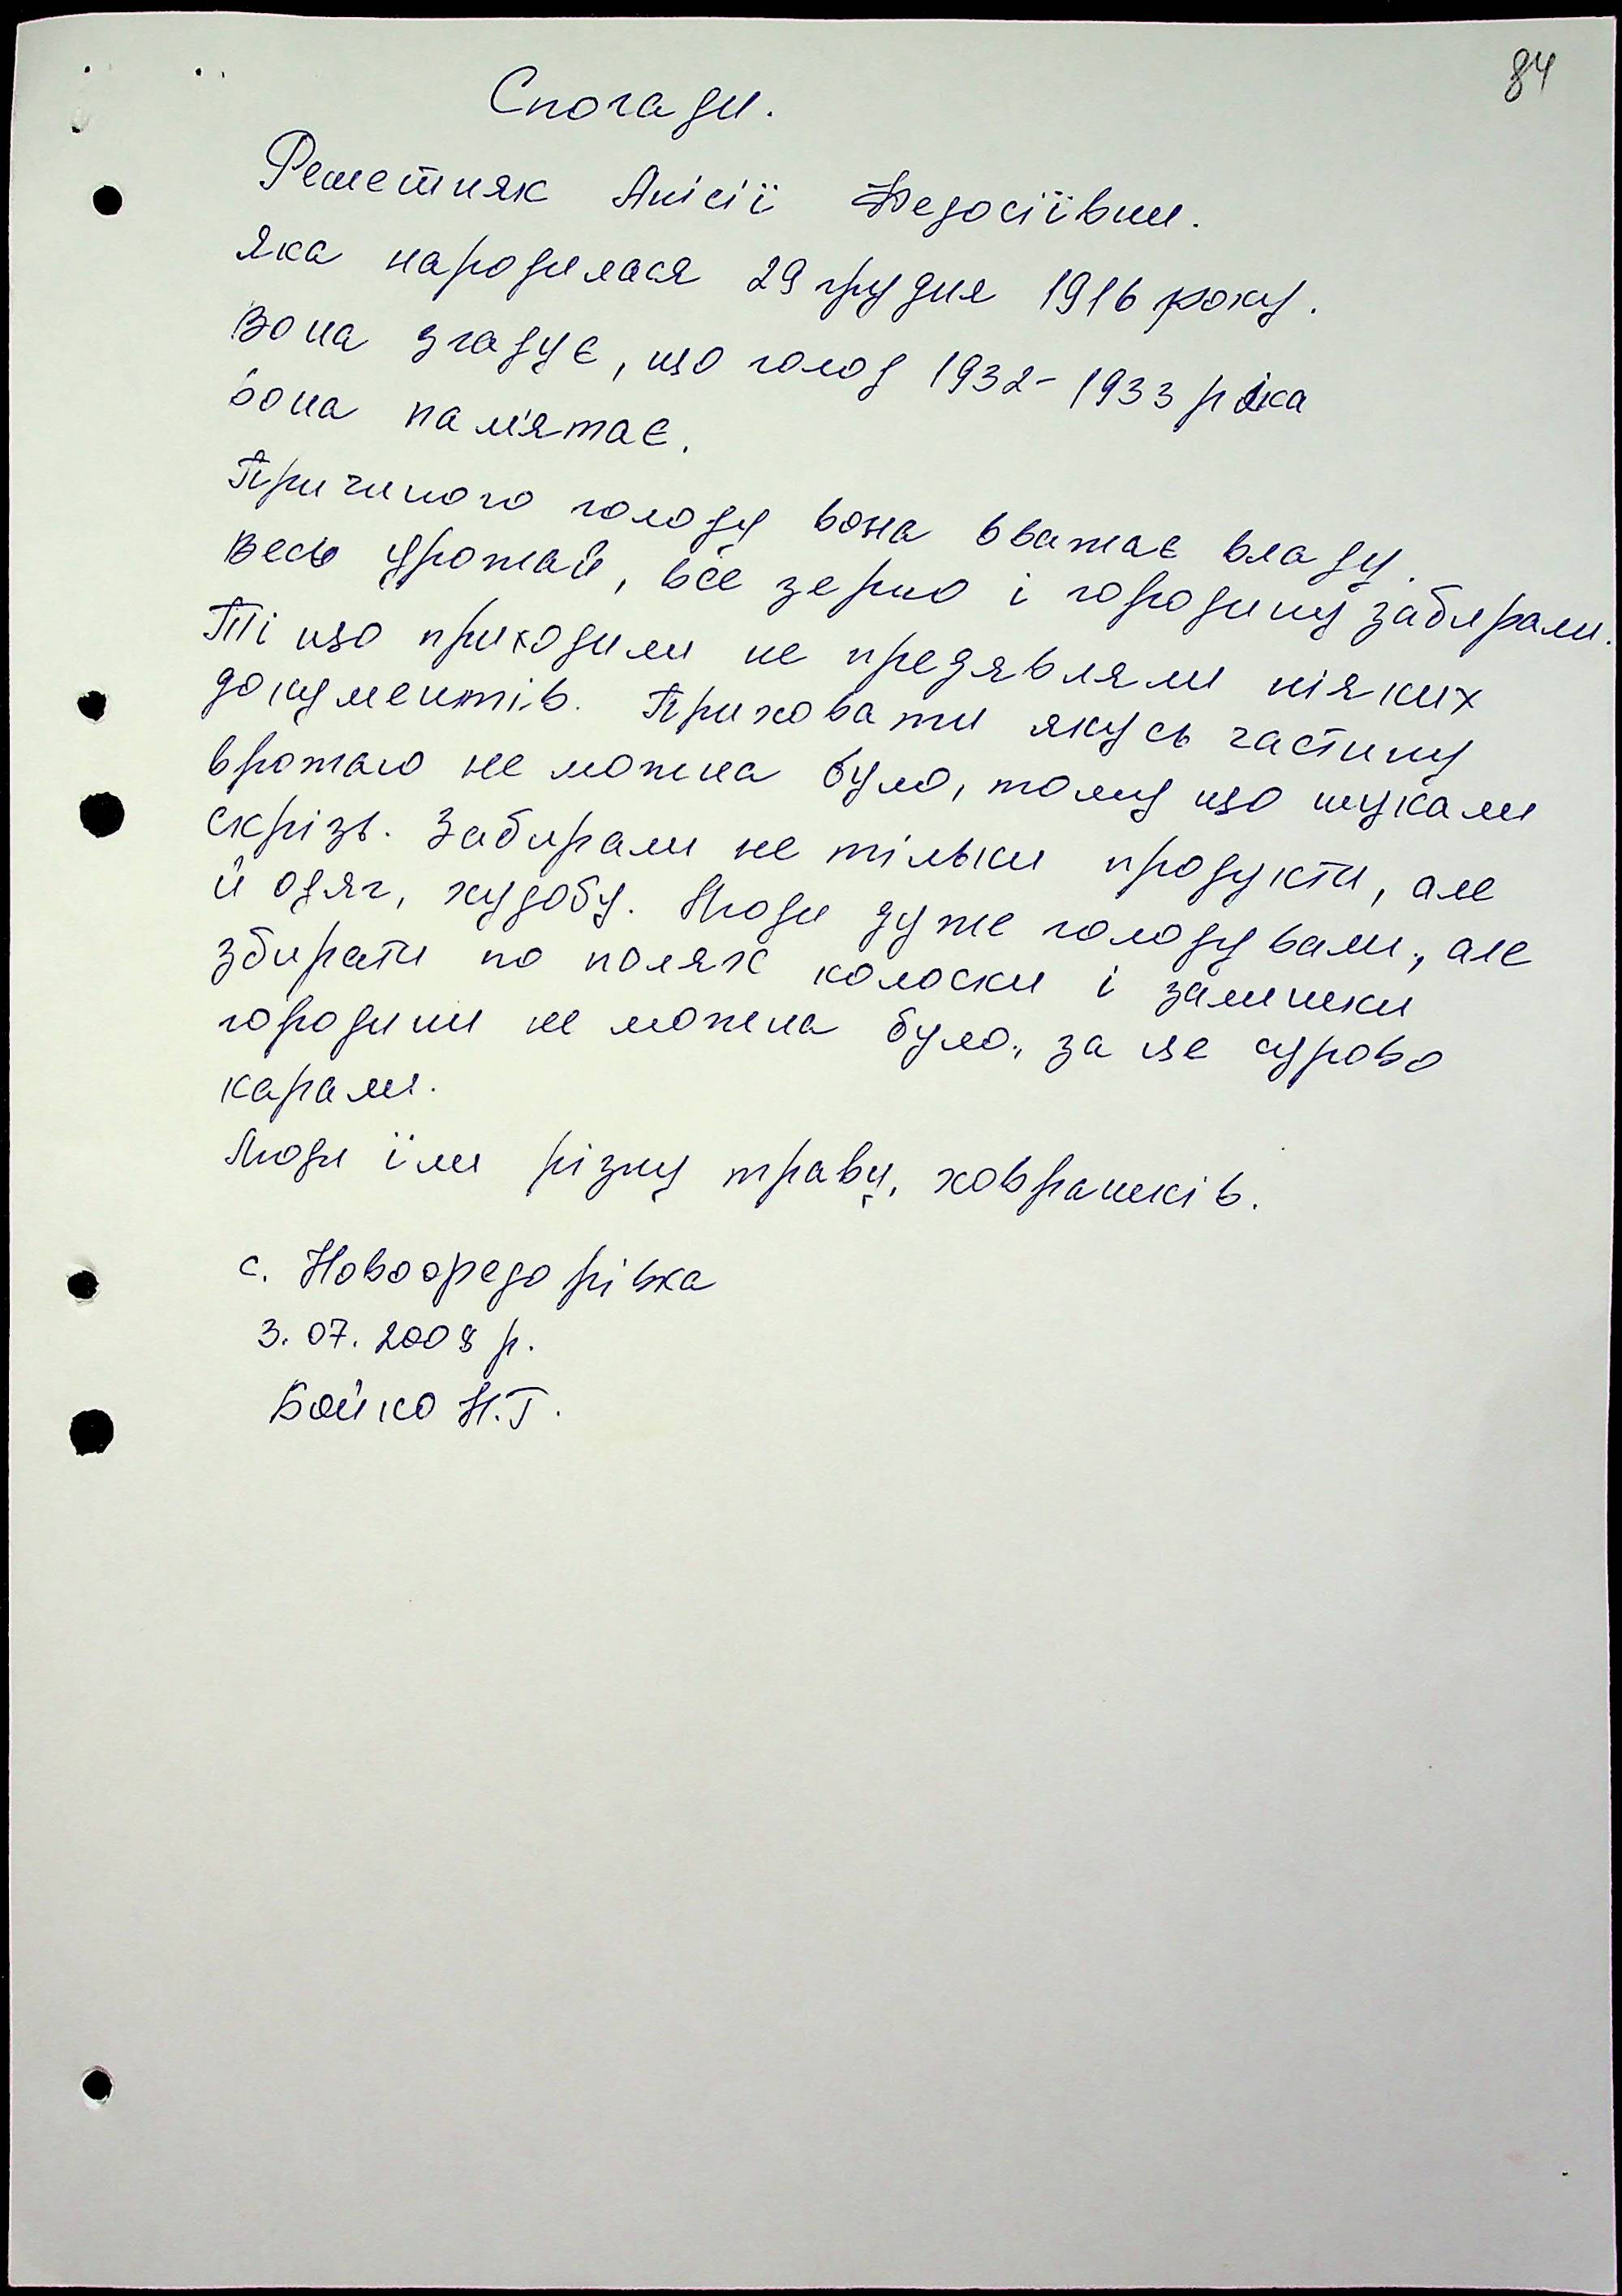 84
Спогади.
Решетняк Анісії Федосіївни.
Яка народилася 29 грудня 1916 року.
Вона згадує, що голод 1932-1933 ріка
вона пам'ятає.
Причиного голоду вона вважає владу.
Весь урожай, все зерно і городину забирали.
Ті що приходили не предявляли ніяких
документів. Приховати якусь частину
врожаю не можна було, тому що шукали
скрізь. Забирали не тільки продукти, але
й одяг, худобу. Люди дуже голодували, але
збирати по полях колоски і залишки
городини не можна було, за це сурово
карали.
Люди їли різну траву, ховрашків.
с. Новофедорівка
3.07.2008 р.
Бойко Н.Г.